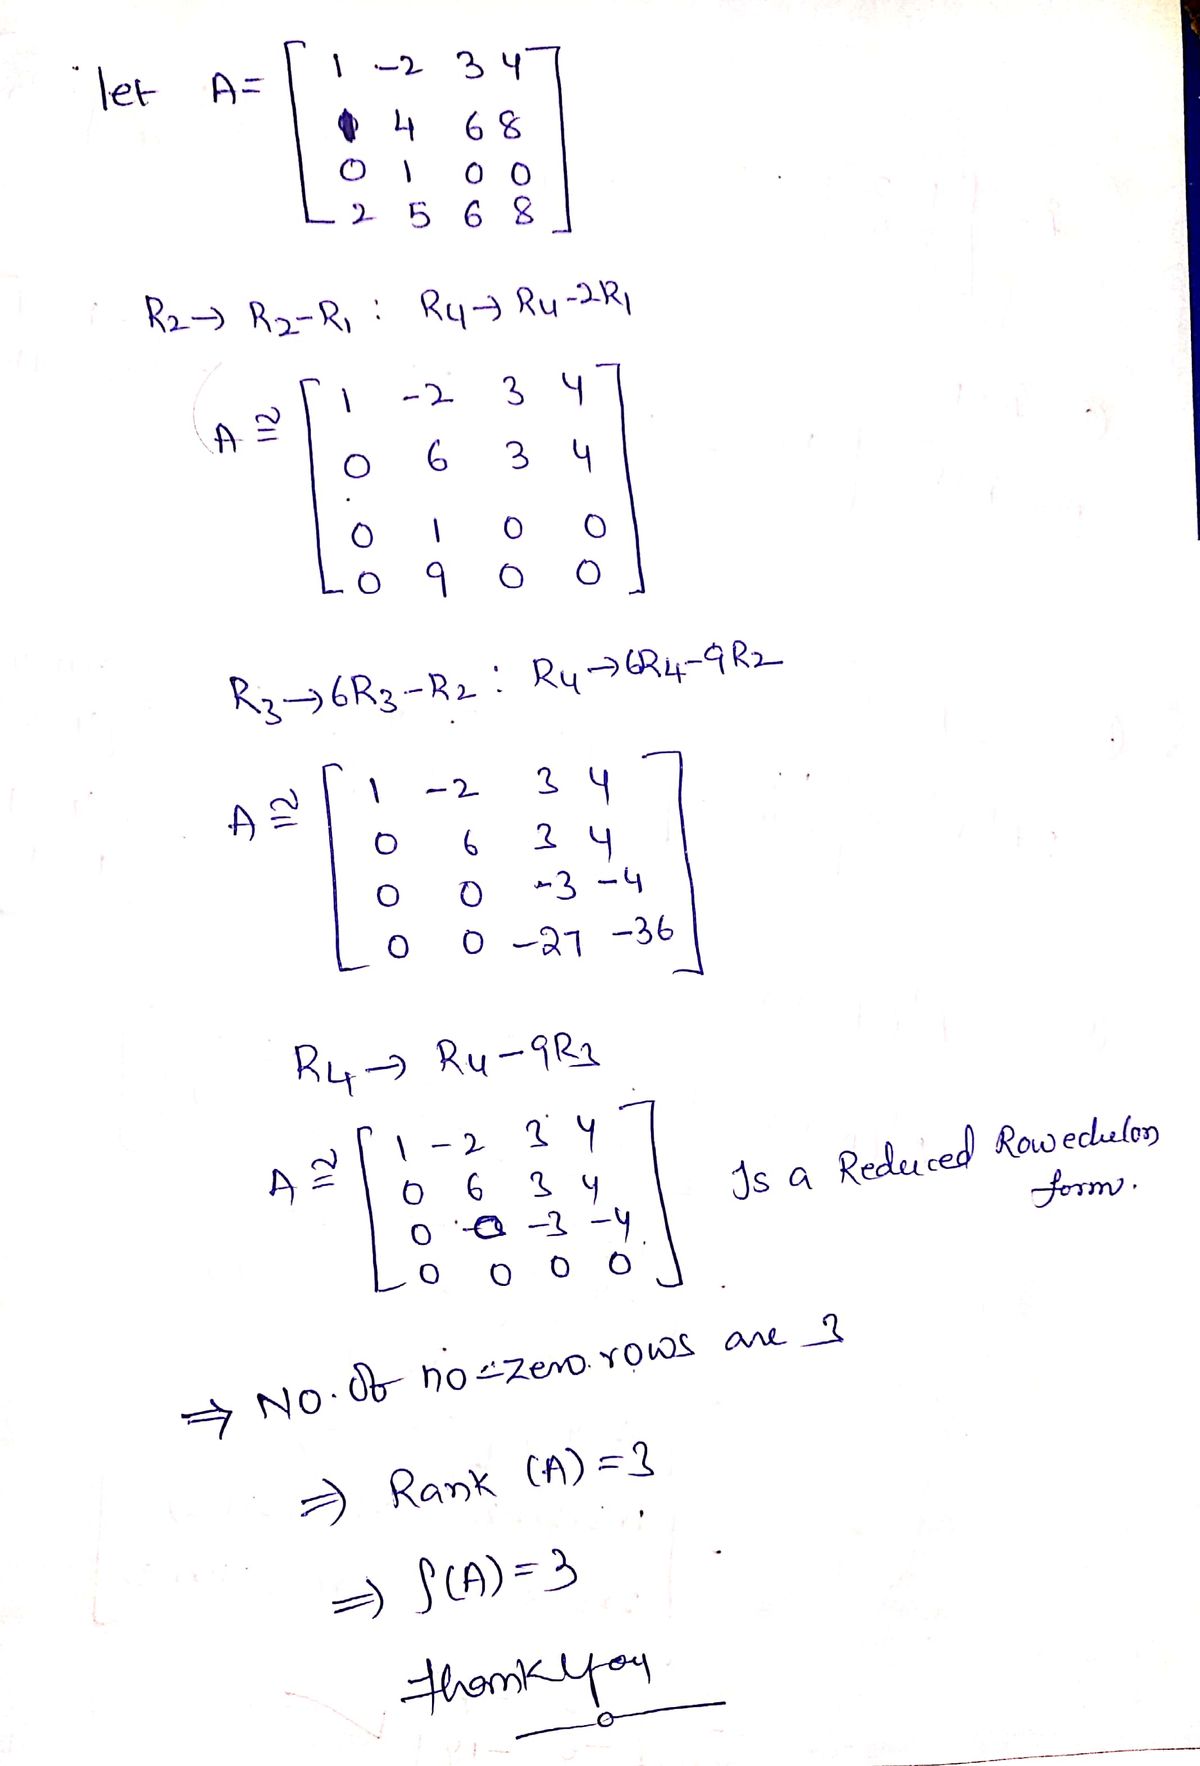 let A = [ 1 -2 3 4
4 6 8
0 1 0 0
2 5 6 8 ]
R2 → R2-R1 : R4 → R4-2R1
A ≅ [ 1 -2 3 4
0 6 3 4
0 1 0 0
0 9 0 0 ]
R3 → 6R3-R2 : R4 → 6R4-9R2
A ≅ [ 1 -2 3 4
0 6 3 4
0 0 -3 -4
0 0 -27 -36 ]
R4 → R4-9R3
A ≅ [ 1 -2 3 4
0 6 3 4
0 0 -3 -4
0 0 0 0 ] Is a Reduced Row echelon form.
⇒ No. Of no-zero rows are 3
⇒ Rank (A) = 3
⇒ ρ(A) = 3
Thank you